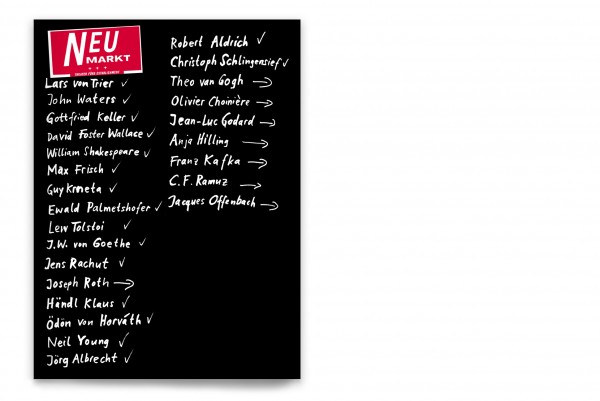 NEU
MARKT
Lars von Trier ✓
John Waters ✓
Gottfried Keller ✓
David Foster Wallace ✓
William Shakespeare ✓
Max Frisch ✓
Guy Krneta ✓
Ewald Palmetshofer ✓
Lew Tolstoi ✓
J.W. von Goethe ✓
Jens Rachut ✓
Joseph Roth →
Händl Klaus ✓
Ödön von Horváth ✓
Neil Young ✓
Jörg Albrecht ✓
Robert Aldrich ✓
Christoph Schlingensief ✓
Theo van Gogh →
Olivier Choinière →
Jean-Luc Godard →
Anja Hilling →
Franz Kafka →
C.F. Ramuz →
Jacques Offenbach →